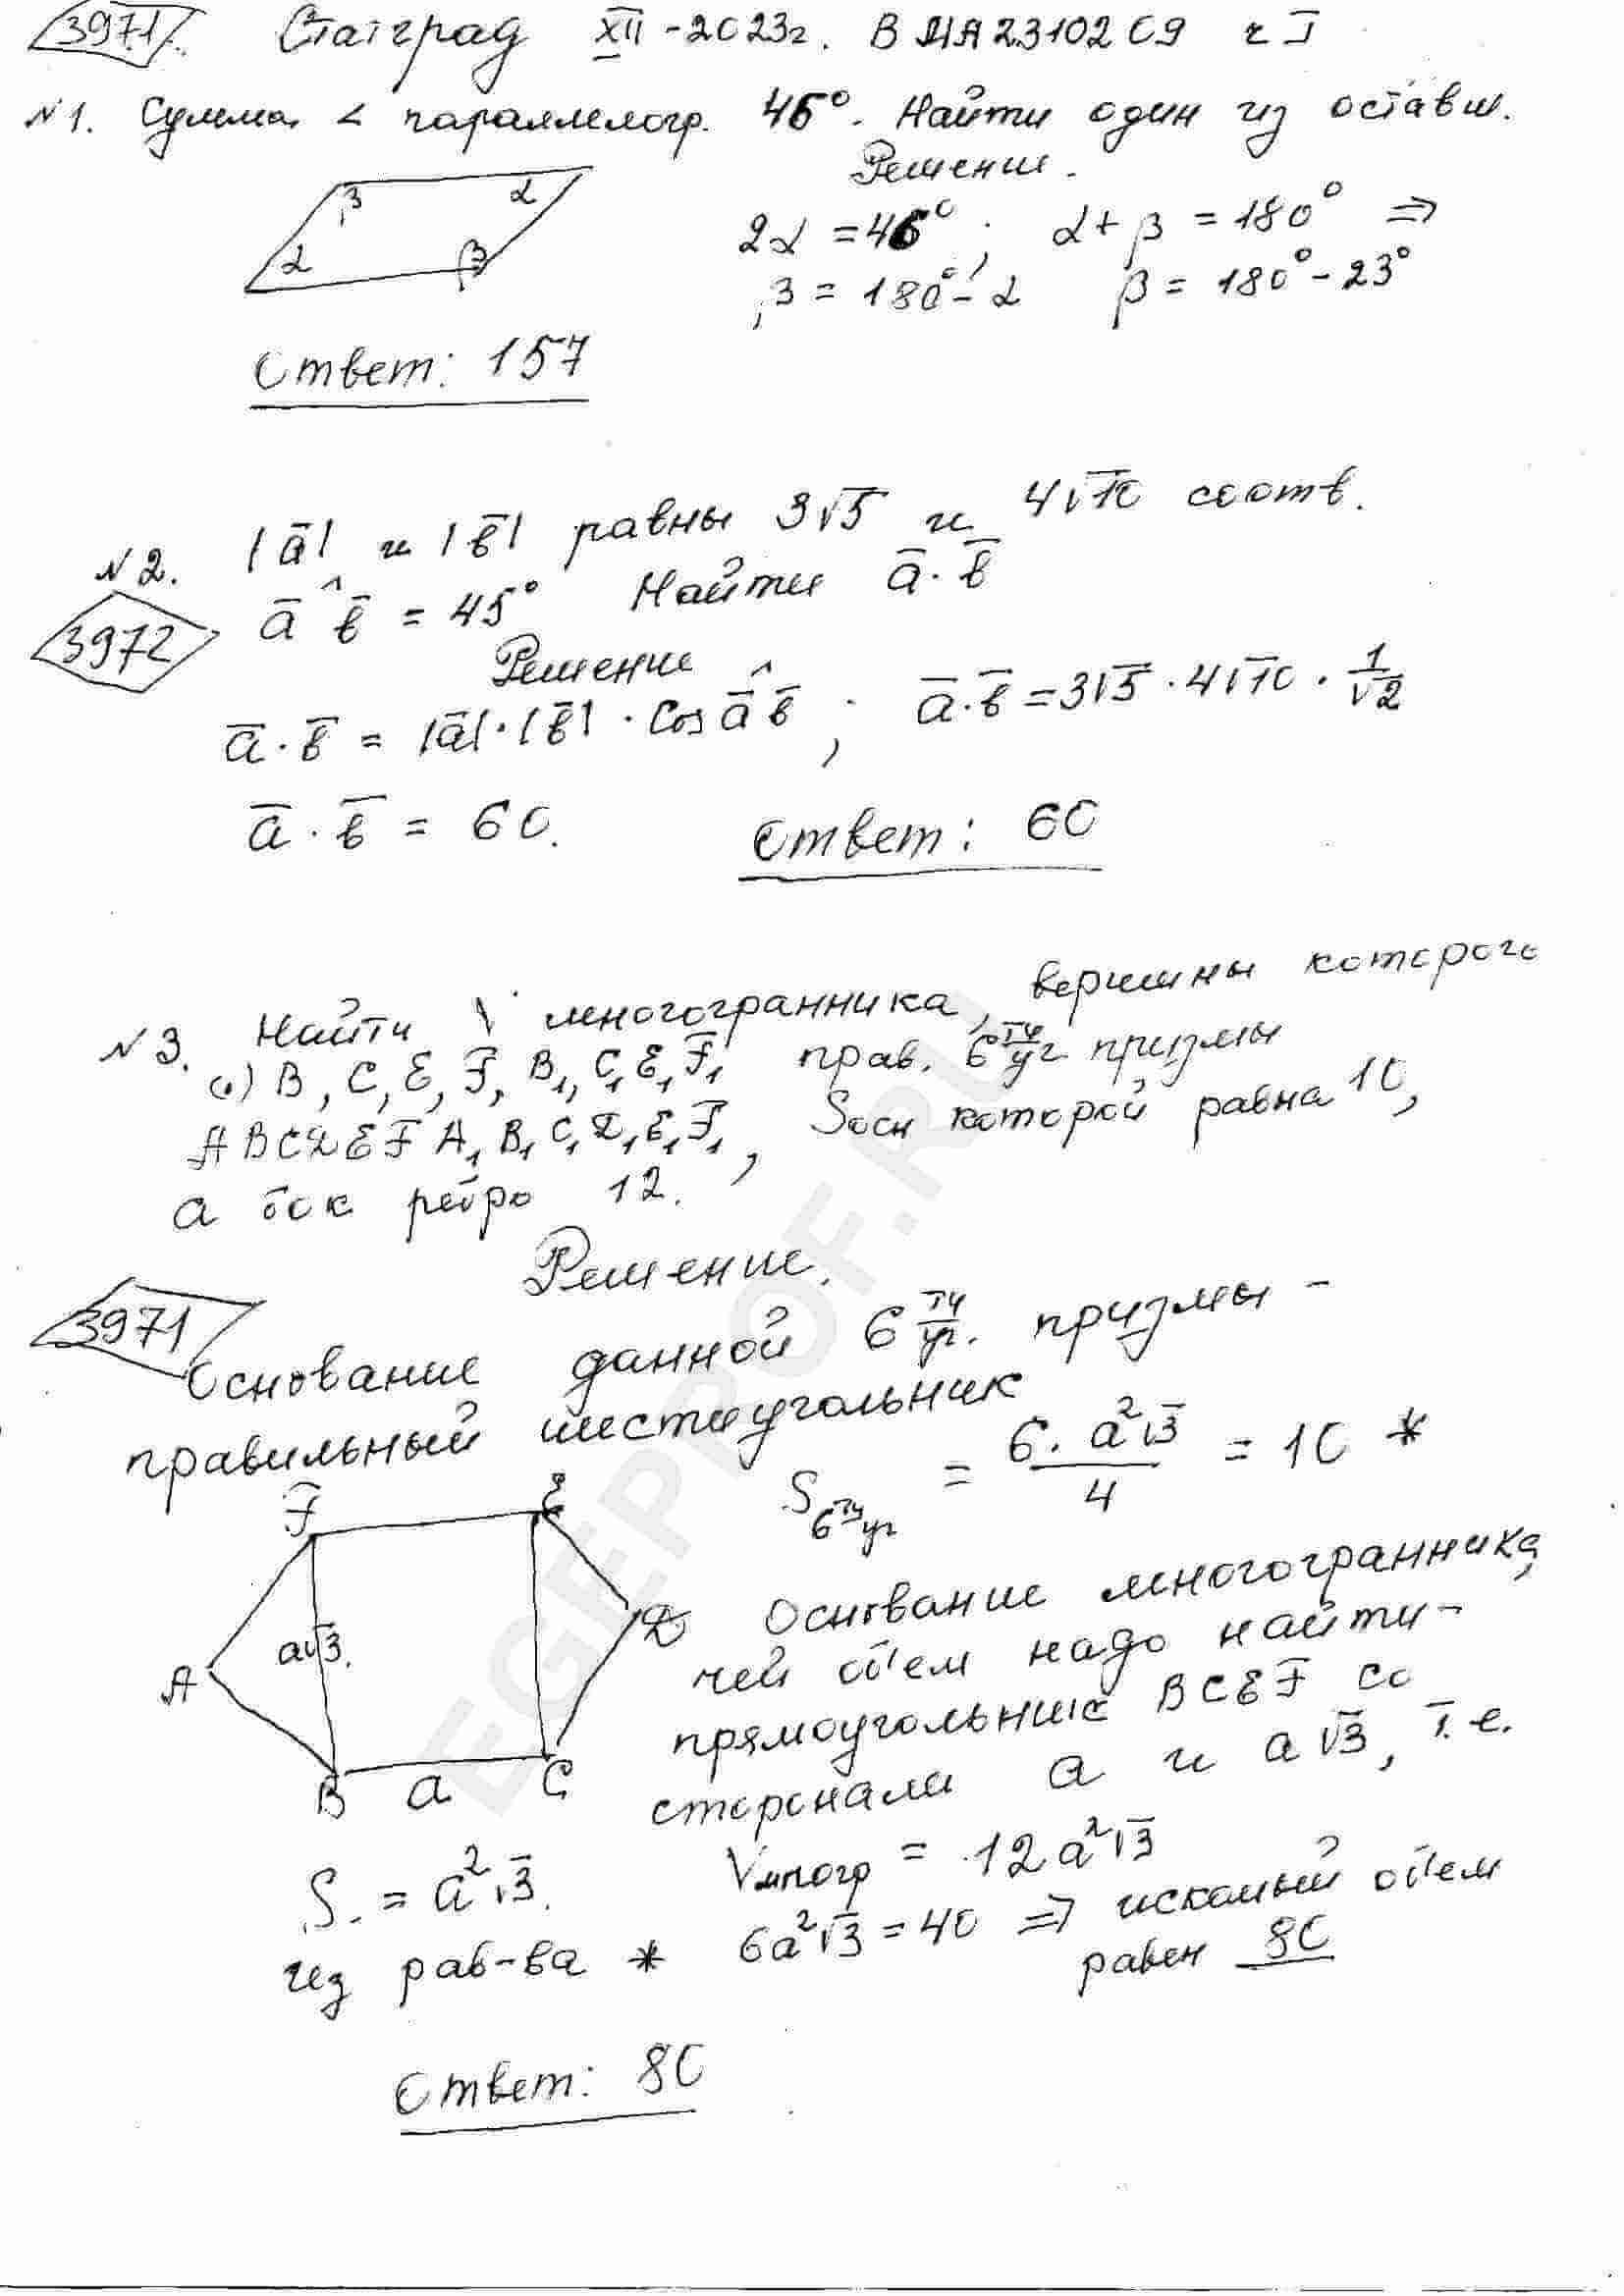 3971 Статград XII-2023г. В МА2310209 ч I
№1. Сумма ∠ параллелогр. 46°. Найти один из оставш.
Решение.
β α
α β
2α = 46°; α + β = 180° ⇒
β = 180° - α β = 180° - 23°
Ответ: 157
№2. |a̅| и |b̅| равны 3√5 и 4√10 соотв.
3972 a̅ ^ b̅ = 45° Найти a̅ · b̅
Решение
a̅ · b̅ = |a̅| · |b̅| · cos a̅ ^ b̅; a̅ · b̅ = 3√5 · 4√10 · 1/√2
a̅ · b̅ = 60. Ответ: 60
№3. Найти V многогранника, вершины которого
(·) B, C, E, F, B₁, C₁ E₁ F₁ прав. 6ти уг призмы
ABCDEF A₁ B₁ C₁ D₁ E₁ F₁, Sосн которой равна 10,
а бок ребро 12.
Решение.
3971
Основание данной 6ти уг. призмы -
правильный шестиугольник
S6ти уг = 6 · a²√3 / 4 = 10 *
F E
A a√3. D
B a C
Основание многогранника,
чей объем надо найти -
прямоугольник BCEF со
сторонами a и a√3, т.е.
S. = a²√3. Vмногр = 12a²√3
из рав-ва * 6a²√3 = 40 ⇒ искомый объем
равен 80
Ответ: 80
EGEPROF.RU